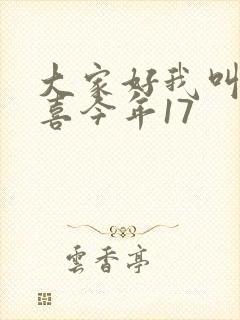 大家好我叫
喜今年17
雲香亭